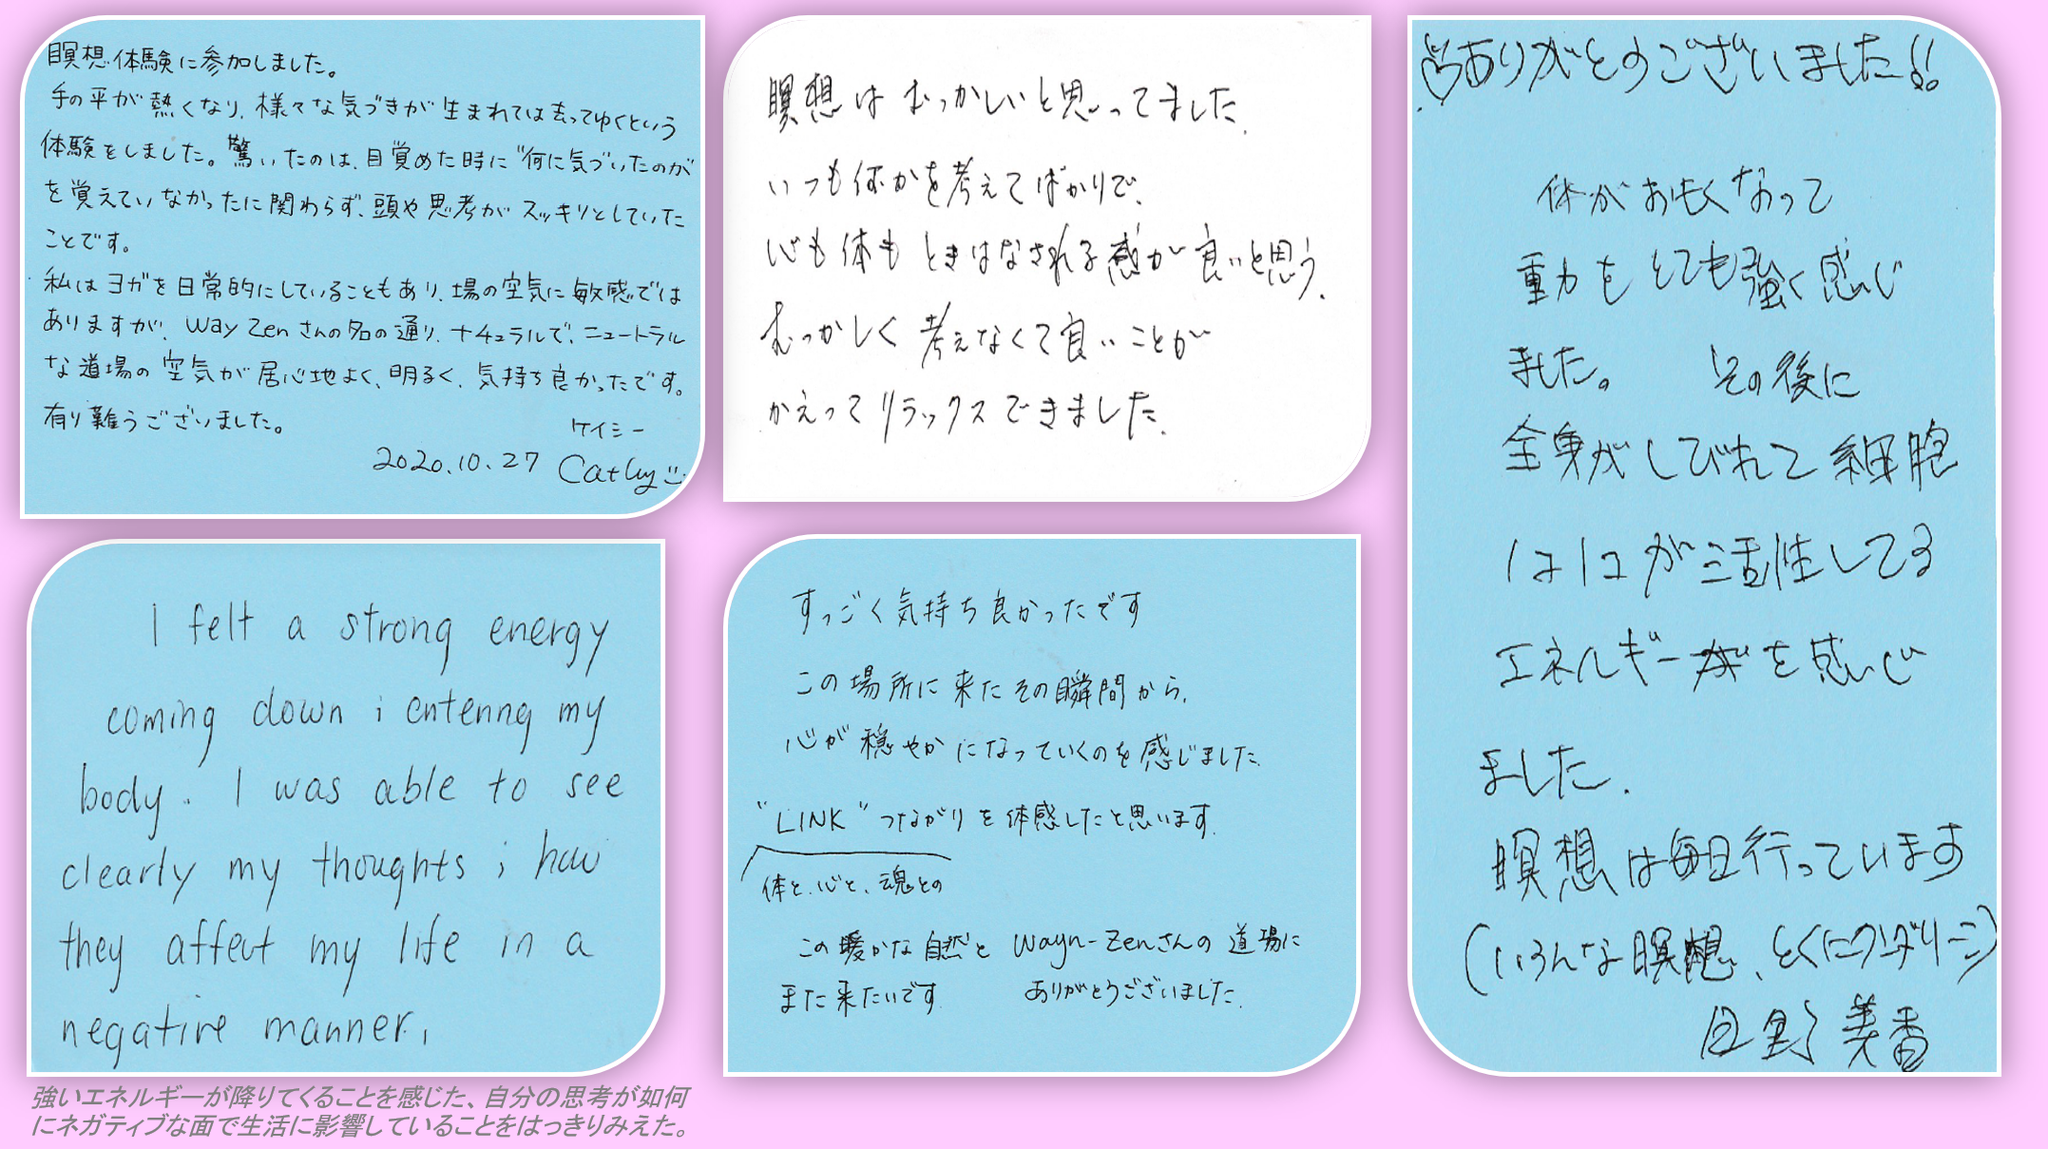 瞑想体験に参加しました。
手の平が熱くなり、様々な気づきが生まれては去ってゆくという
体験をしました。驚いたのは、目覚めた時に"何に気づいたのが
を覚えていなかったに関わらず、頭や思考がスッキリとしていた
ことです。
私はヨガを日常的にしていることもあり、場の空気に敏感では
ありますが、Way Zenさんの名の通り、ナチュラルで、ニュートラル
な道場の空気が居心地よく、明るく、気持ち良かったです。
有り難うございました。
ケイシー
2020.10.27 Cathy
瞑想はむっかしいと思ってました、
いつも何かを考えてばかりで、
心も体もときはなされる感が良いと思う、
むっかしく考えなくて良いことが
かえってリラックスできました、
ありがとうございました!!
体がおもくなって
重力をとても強く感じ
ました。 その後に
全身がしびれて細胞
1コ1コが活性してる
エネルギーがを感じ
ました.
瞑想は毎日行っています
(いろんな瞑想、とくに
美香
I felt a strong energy
coming down i entering my
body. I was able to see
clearly my thoughts i how
they affect my life in a
negative manner,
強いエネルギーが降りてくることを感じた、自分の思考が如何
にネガティブな面で生活に影響していることをはっきりみえた。
すっごく気持ち良かったです
この場所に来たその瞬間から、
心が穏やかになっていくのを感じました.
"LINK"つながりを体感したと思います.
体と、心と、魂との
この暖かな自然と Wayn-Zenさんの道場に
また来たいです. ありがとうございました.